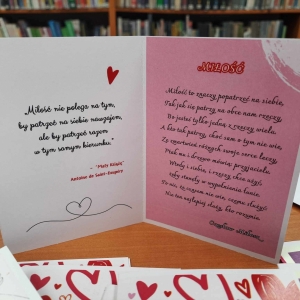 „Miłość nie polega na tym,
by patrzeć na siebie nawzajem,
ale by patrzeć razem
w tym samym kierunku."
- "Mały Książę"
Antoine de Saint-Exupéry
MIŁOŚĆ
Miłość to znaczy popatrzeć na siebie,
Tak jak się patrzy na obce nam rzeczy,
Bo jesteś tylko jedną z rzeczy wielu.
A kto tak patrzy, choć sam o tym nie wie,
Ze zmartwień różnych swoje serce leczy,
Ptak mu i drzewo mówią: przyjacielu.
Wtedy i siebie, i rzeczy chce użyć,
Żeby stanęły w wypełnienia łunie.
To nic, że czasem nie wie, czemu służyć:
Nie ten najlepiej służy, kto rozumie.
Czesław Miłosz